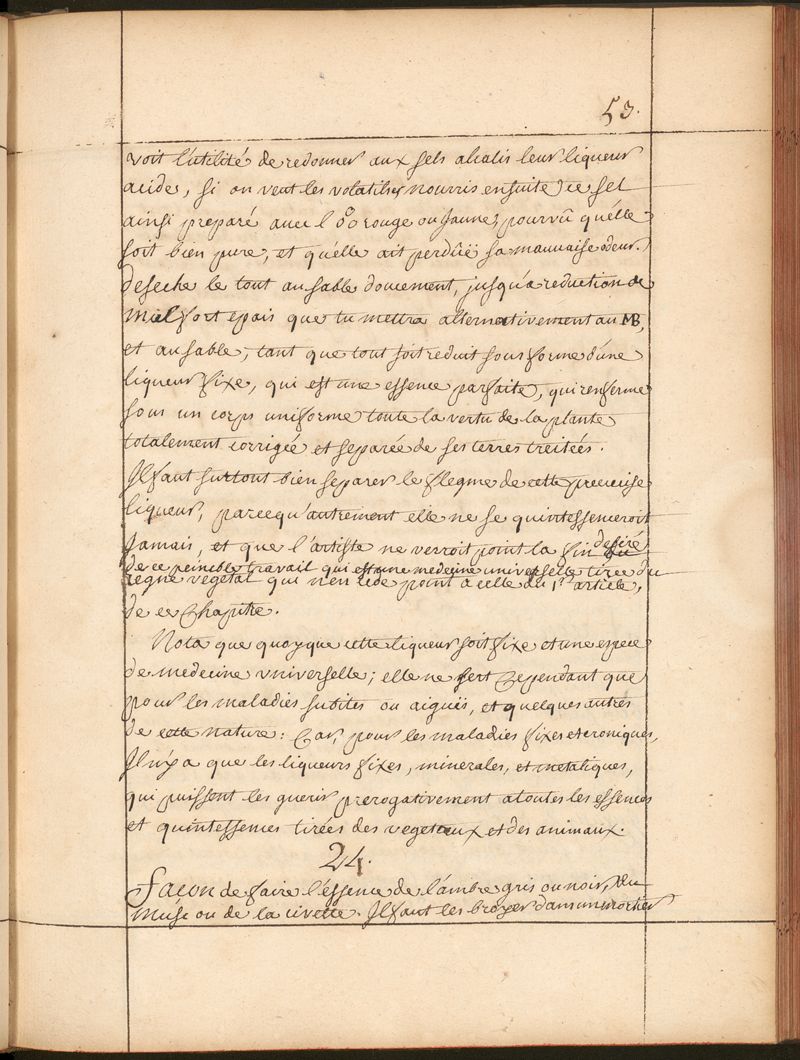 53.
voit l'utilité de redonner aux sels alcalis leur liqueur
acide, si on veut les volatiliser nourris ensuite ce sel
ainsi preparé avec l' rouge ou jaune, pourvû qu'elle
soit bien pure, et qu'elle ait perdüe sa mauvaise odeur.
deseche le tout au sable doucement, jusqu'a reduction de
miel fort epais que tu mettra alternativement au MB,
et au sable, tant que tout soit reduit sous forme d'une
liqueur fixe, qui est une essence parfaite, qui renferme
sous un corps uniforme toute la vertu de la plante
totalement corrigée et separée de ses terres
Il faut surtout bien separer le flegme de cette precieuse
liqueur, parcequ'autrement elle ne se quintessenceroit
Jamais, et que l'artiste ne verroit point la fin desiré
de ce peinible travail qui est une medecine universelle tirée du
regne vegetal qui n'en cede point a celle du 1r. article,
de ce Chapitre.
Nota que quoyque cette liqueur soit fixe et une espece
de medecine vniverselle; elle ne sert Cependant que
pour les maladies subites ou aiguës, et quelques autres
de cette nature: Car, pour les maladies fixes et croniques,
Il n'y a que les liqueurs fixes, minerales, et metaliques,
qui puissent les guerir prerogativement a toutes les essences
et quintessences tirées des vegetaux et des animaux.
24.
Façon de faire l'éssence de l'ambre gris ou noir, du
Musc ou de la civette. Il faut les broyer dans un mortier